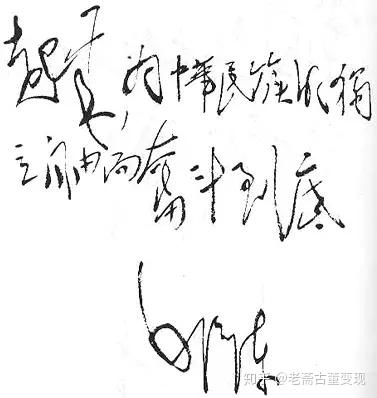 起来，为中華民族的獨
立自由而奮斗到底
毛泽东
知乎 @老斋古董变现